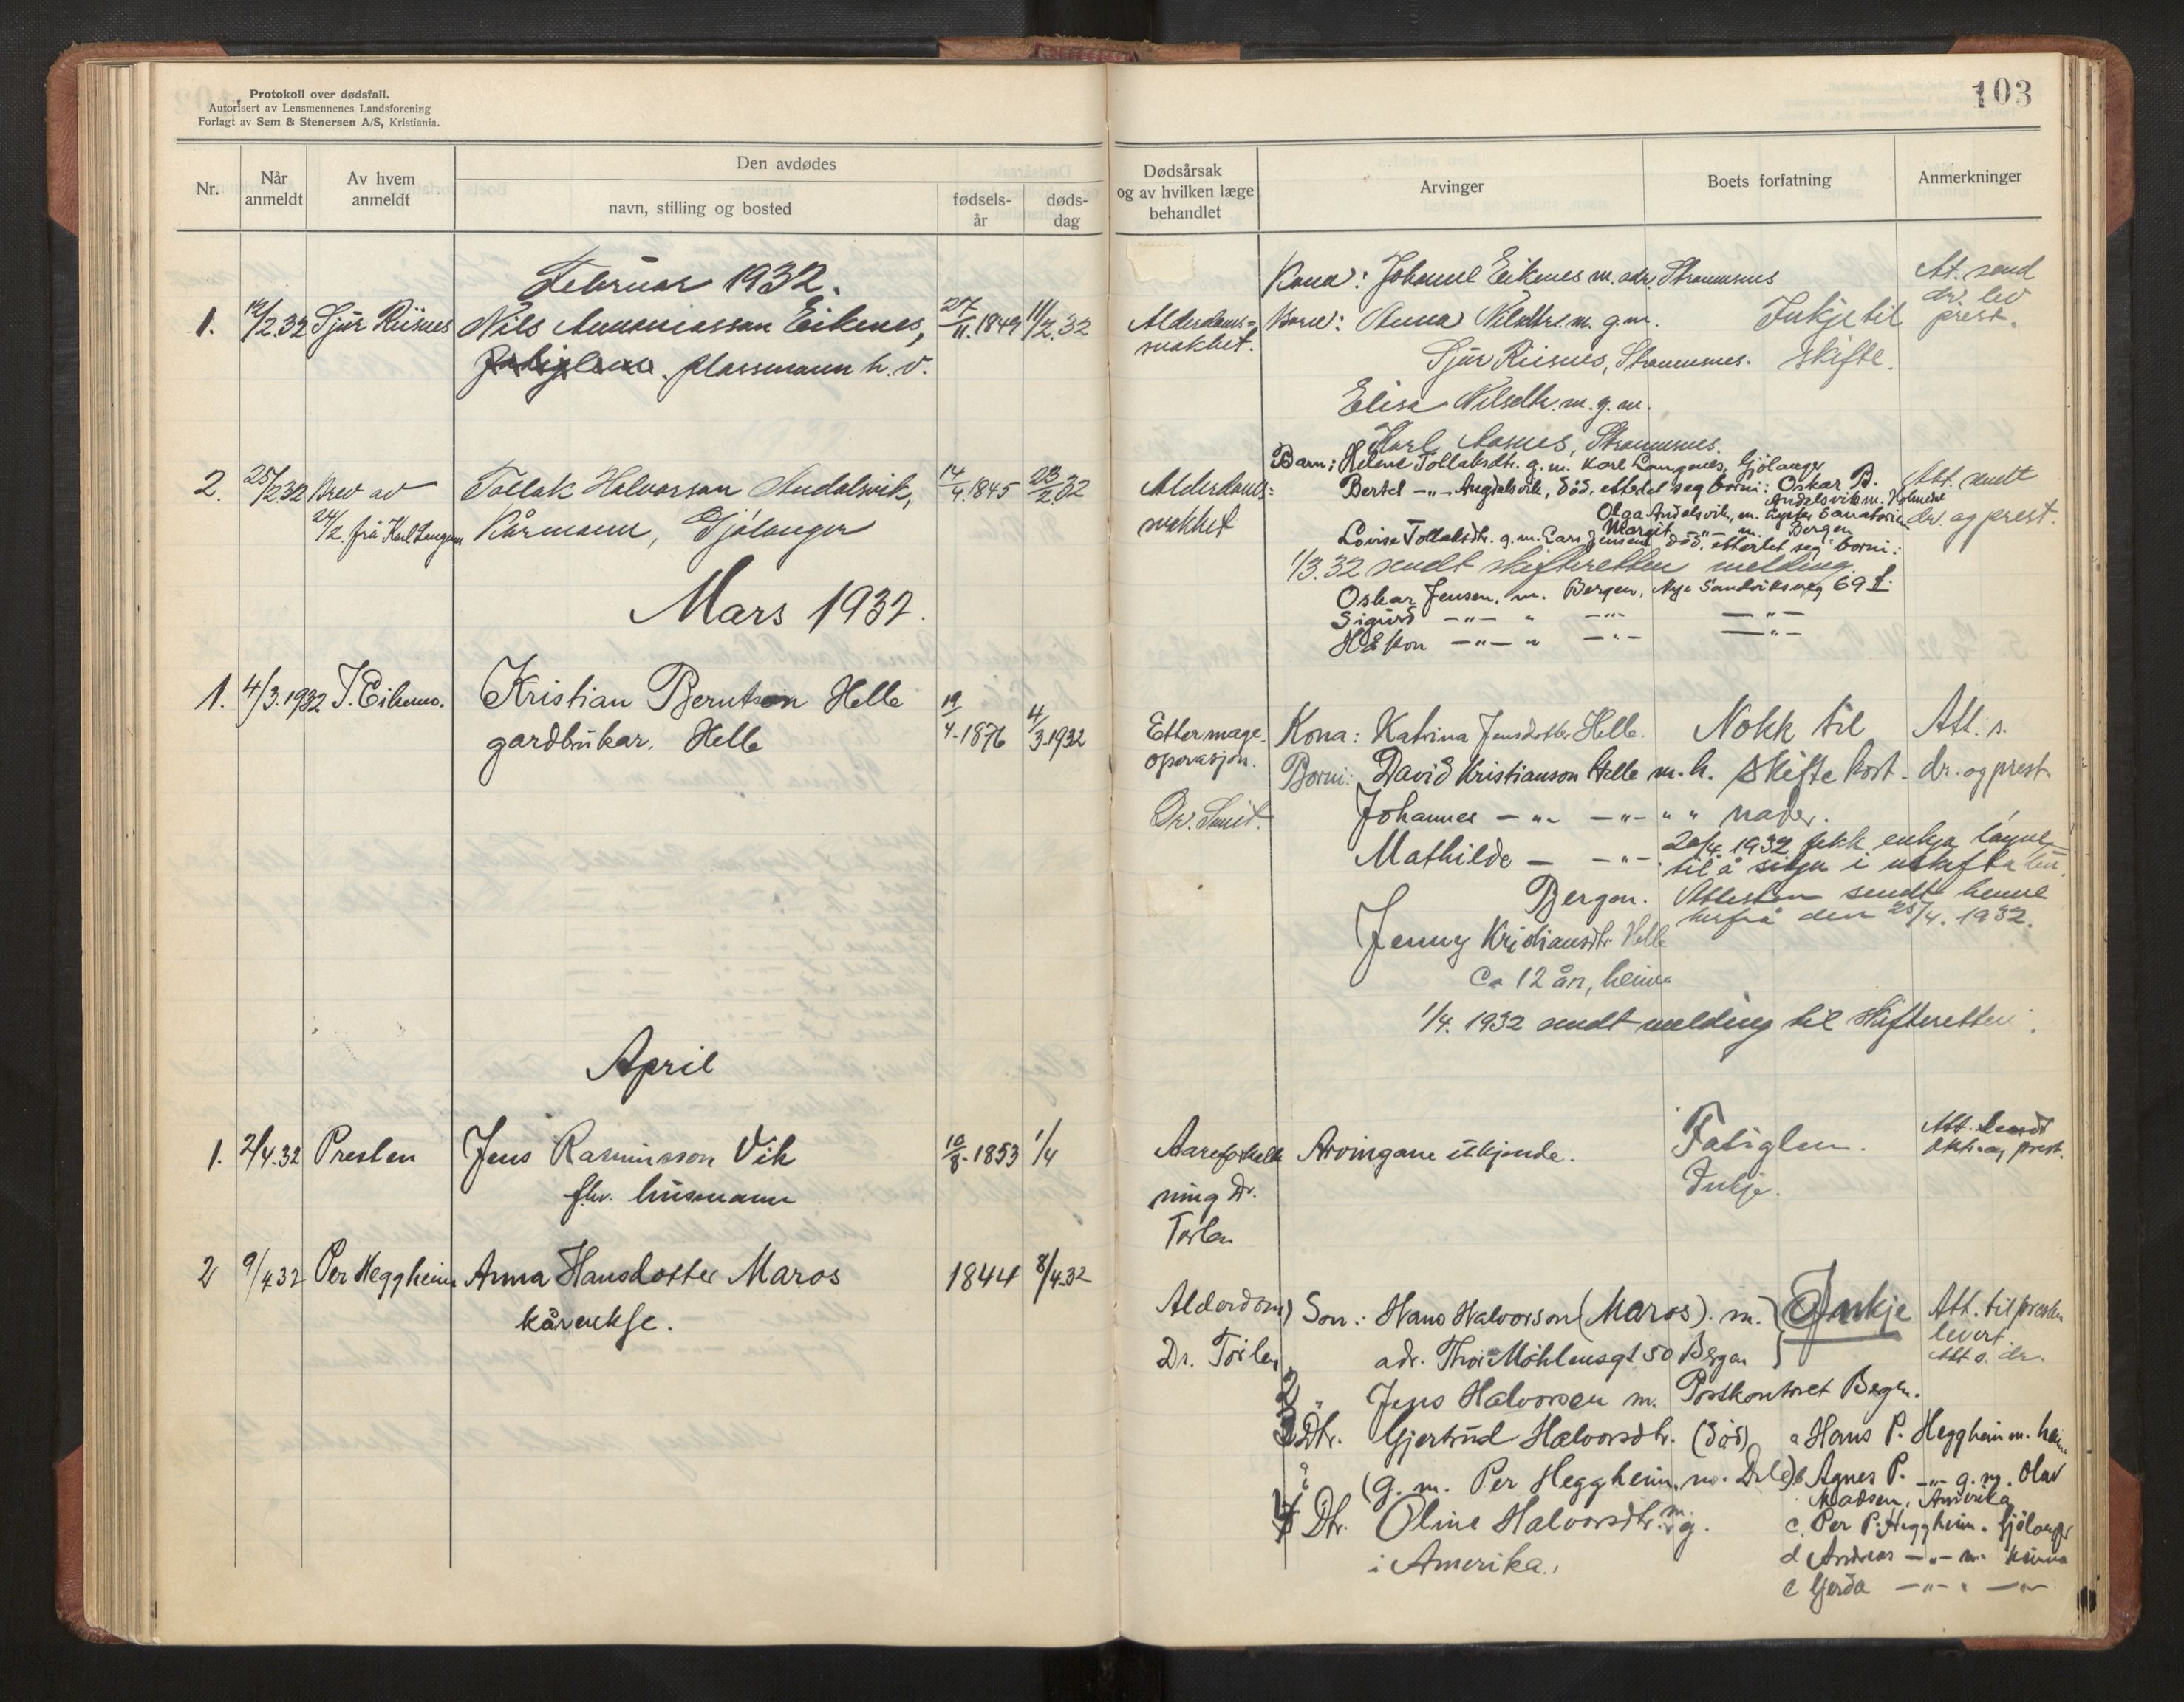 Protokoll over dødsfall.
Autorisert av Lensmennenes Landsforening
Forlagt av Sem & Stenersen A/S, Kristiania.
103
Nr.
Når anmeldt
Av hvem anmeldt
Den avdødes
navn, stilling og bosted
fødsels-år
døds-dag
Dødsårsak og av hvilken læge behandlet
Arvinger
Boets forfatning
Anmerkninger
Februar 1932.
1. 12/2.32 Sjur Riisnes Nils Eikenes, 27/11.1849 11/2.32
plassmann h. v.
Alderdoms=
svakhet.
Kona: Johanne Eikenes m. adr. Stramsnes
Born: Anna Nilsdtr. m. g.m.
Sjur Riisnes, Stramsnes.
Elisa Nilsdtr. m. g. m.
Karl Aasnes, Stramsnes.
Inkje til
skifte.
At. send
dr. lev
prest.
2. 25/2.32 Brev av Tollak Halvorson Andalsvik, 14/4.1845 23/2.32
24/2. frå Karl Langenes Kårmann, Gjølanger
Alderdoms=
svakhet
Barn: Helene Tollaksdtr. g. m. Karl Langenes, Gjölanger
Bertel -"- Angdalsvik, död, etterlet seg borni: Oskar B.
Andalsvik m. Holmedal
Olga Andalsvik, m. Lyster Sanatorie
Margit -"- m. Bergen
Lovise Tollaksdtr. g. m. Lars Jensen död, etterlet seg borni:
1/3.32 sendt skifteretten melding.
Oskar Jensen, m. Bergen, Nye Sandviksveg 69
Sigurd -"- " -"- -"-
Håkon -"- " -"- -"-
Att. sendt
dr. og prest.
Mars 1932.
1. 4/3.1932 J. Eikemo. Kristian Berntson Helle 19/4.1876 4/3.1932
gardbrukar. Helle
Etter mage-
operasjon.
Dr. Smit.
Kona: Katrina Jensdotter Helle.
Borni: David Kristianson Helle m. h.
Johannes -"- -"- " "
Mathilde - -"-
Bergen.
Jenny Kristiansdtr Helle
Ca 12 år, heime
Nokk til
skiftekost-
nader.
20/4 1932 fekk enkja løyve
til å sitja i uskifta bu.
Attesten sendt henne
herfrå den 25/4. 1932.
Att. s.
dr. og prest.
1/4. 1932 sendt melding til Skifteretten.
April
1. 2/4.32 Presten Jens Rasmusson Vik 10/8.1853 1/4
fhv. husmann
Aareforkalk
ning Dr.
Torlen
Arvingane ukjende.
Fatiglem.
Inkje.
Att. sendt
dkt. og prest.
2 9/4.32 Per Heggheim Anna Hansdotter Maros 1844 8/4.32
kårenkje.
Alderdom
Dr. Torlen
Son: Hans Halvorson (Maros). m.
adr. Thor Möhlensgt 50 Bergen
Inkje
Att. til presten
levert.
Att o. dr.
2 " Jens Halvorsen m. Postkontoret Bergen.
3 Dtr. Gjertrud Halvorsdtr. (död) a Hans P. Heggheim m. heime
(g. m. Per Heggheim, m. Dale) b Agnes P. -"- g. m. Olav
Madsen, Amerika
4 Dtr. Oline Halvorsdtr. m. g. c. Per P. Heggheim. Gjölanger
i Amerika. d Andreas -"- m. heime
e Gerda -"- " -"-